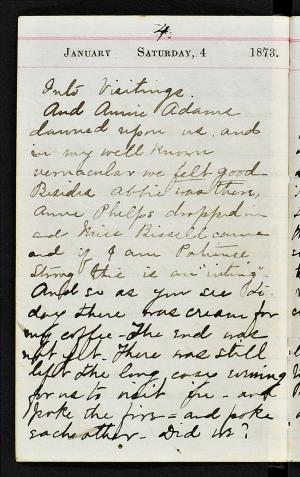 4.
JANUARY SATURDAY, 4 1873.
Into Visitings.
And Annie Adams
dawned upon us and
in my well known
vernacular we felt good
Besides Abbie was there,
Anne Phelps dropped in
and Miss Bissell came
and if I am Patience
Strong this is an "inting".
And so as you see to-
day there was cream for
my coffee - The end was
not yet. There was still
left the long cosy evening
for us to visit in - and
poke the fire - and poke
each other - Did we?